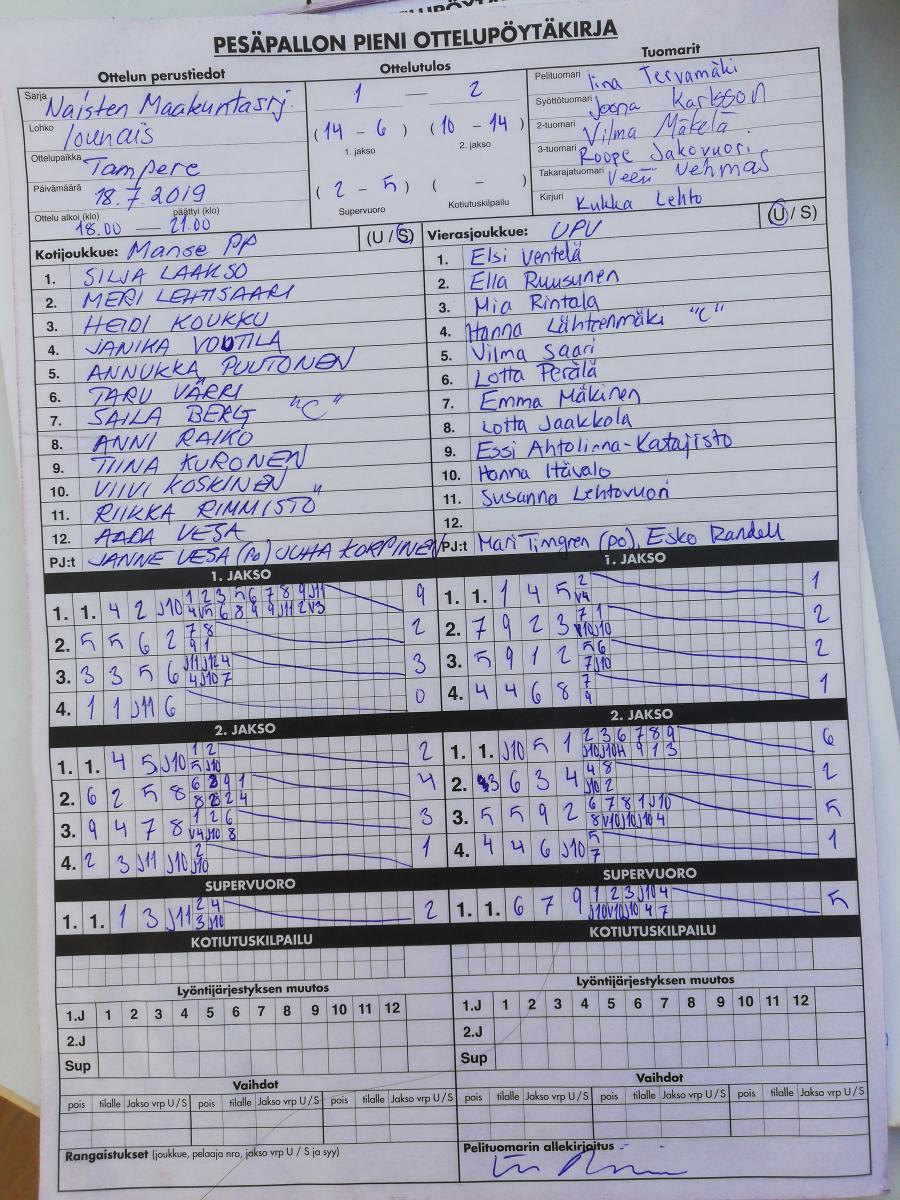 PESÄPALLON PIENI OTTELUPÖYTÄKIRJA
Ottelun perustiedot
Sarja Naisten Maakuntasrj.
Lohko lounais
Ottelupaikka Tampere
Päivämäärä 18.7.2019
Ottelu alkoi (klo) päättyi (klo)
18.00 — 21.00
Ottelutulos
1 — 2
(14 - 6) (10 - 14)
1. jakso 2. jakso
(2 - 5) ( - )
Supervuoro Kotiutuskilpailu
Tuomarit
Pelituomari Iina Tervamäki
Syöttötuomari Joona Karlsson
2-tuomari Vilma Mäkelä
3-tuomari Roope Jakovuori
Takarajatuomari Veeti Nehmas
Kirjuri Kukka Lehto
Kotijoukkue: Manse PP (U / S)
1. SILJA LAAKSO
2. MERI LEHTISAARI
3. HEIDI KOUKKU
4. JANIKA VOUTILA
5. ANNUKKA PUUTONEN
6. TARU VÄRRI
7. SAILA BERG "C"
8. ANNI RAIKO
9. TIINA KURONEN
10. VIIVI KOSKINEN
11. RIIKKA RIMMISTO
12. AADA VESA
PJ:t JANNE VESA (PO) JUHA KORPINEN
Vierasjoukkue: UPV (U / S)
1. Elsi Ventelä
2. Ella Ruusunen
3. Mia Rintala
4. Hanna Lähteenmäki "C"
5. Vilma Saari
6. Lotta Perälä
7. Emma Mäkinen
8. Lotta Jaakkola
9. Essi Ahtolinna-Katajisto
10. Hanna Itävalo
11. Susanna Lehtovuori
12.
PJ:t Mari Timgren (po), Esko Randell
1. JAKSO
1. 1. 4 2 J10 9
2. 5 5 6 2 7 8 2
9 1
3. 3 3 5 6 J11 J12 4 3
4 J10 7
4. 1 1 J11 6 0
2. JAKSO
1. 1. 4 5 J10 1 2 2
5 J10
2. 6 2 5 8 4
3. 9 4 7 8 1 2 6 3
V4 J10 8
4. 2 3 J11 J10 2 1
J10
SUPERVUORO
1. 1. 1 3 J11 2 4 2
3 J10
KOTIUTUSKILPAILU
1. JAKSO
1. 1. 1 4 5 2 1
V4
2. 7 9 2 3 7 1 2
V10 J10
3. 5 9 1 2 5 6 2
7 J10
4. 4 4 6 8 7 1
9
2. JAKSO
1. 1. J10 5 1 2 3 6 7 8 9 6
2. 3 6 3 4 4 8 2
J10 2
3. 5 5 9 2 6 7 8 1 J10 5
8 V10 J10 J10 4
4. 4 4 6 J10 5 1
7
SUPERVUORO
1. 1. 6 7 9 1 2 3 J10 4 5
J10 V10 J10 4 7
KOTIUTUSKILPAILU
Lyöntijärjestyksen muutos
1.J 1 2 3 4 5 6 7 8 9 10 11 12
2.J
Sup
Vaihdot
pois tilalle Jakso vrp U / S pois tilalle Jakso vrp U / S pois tilalle Jakso vrp U / S
Rangaistukset (joukkue, pelaaja nro, jakso vrp U / S ja syy)
Lyöntijärjestyksen muutos
1.J 1 2 3 4 5 6 7 8 9 10 11 12
2.J
Sup
Vaihdot
pois tilalle Jakso vrp U / S pois tilalle Jakso vrp U / S pois tilalle Jakso vrp U / S
Pelituomarin allekirjoitus